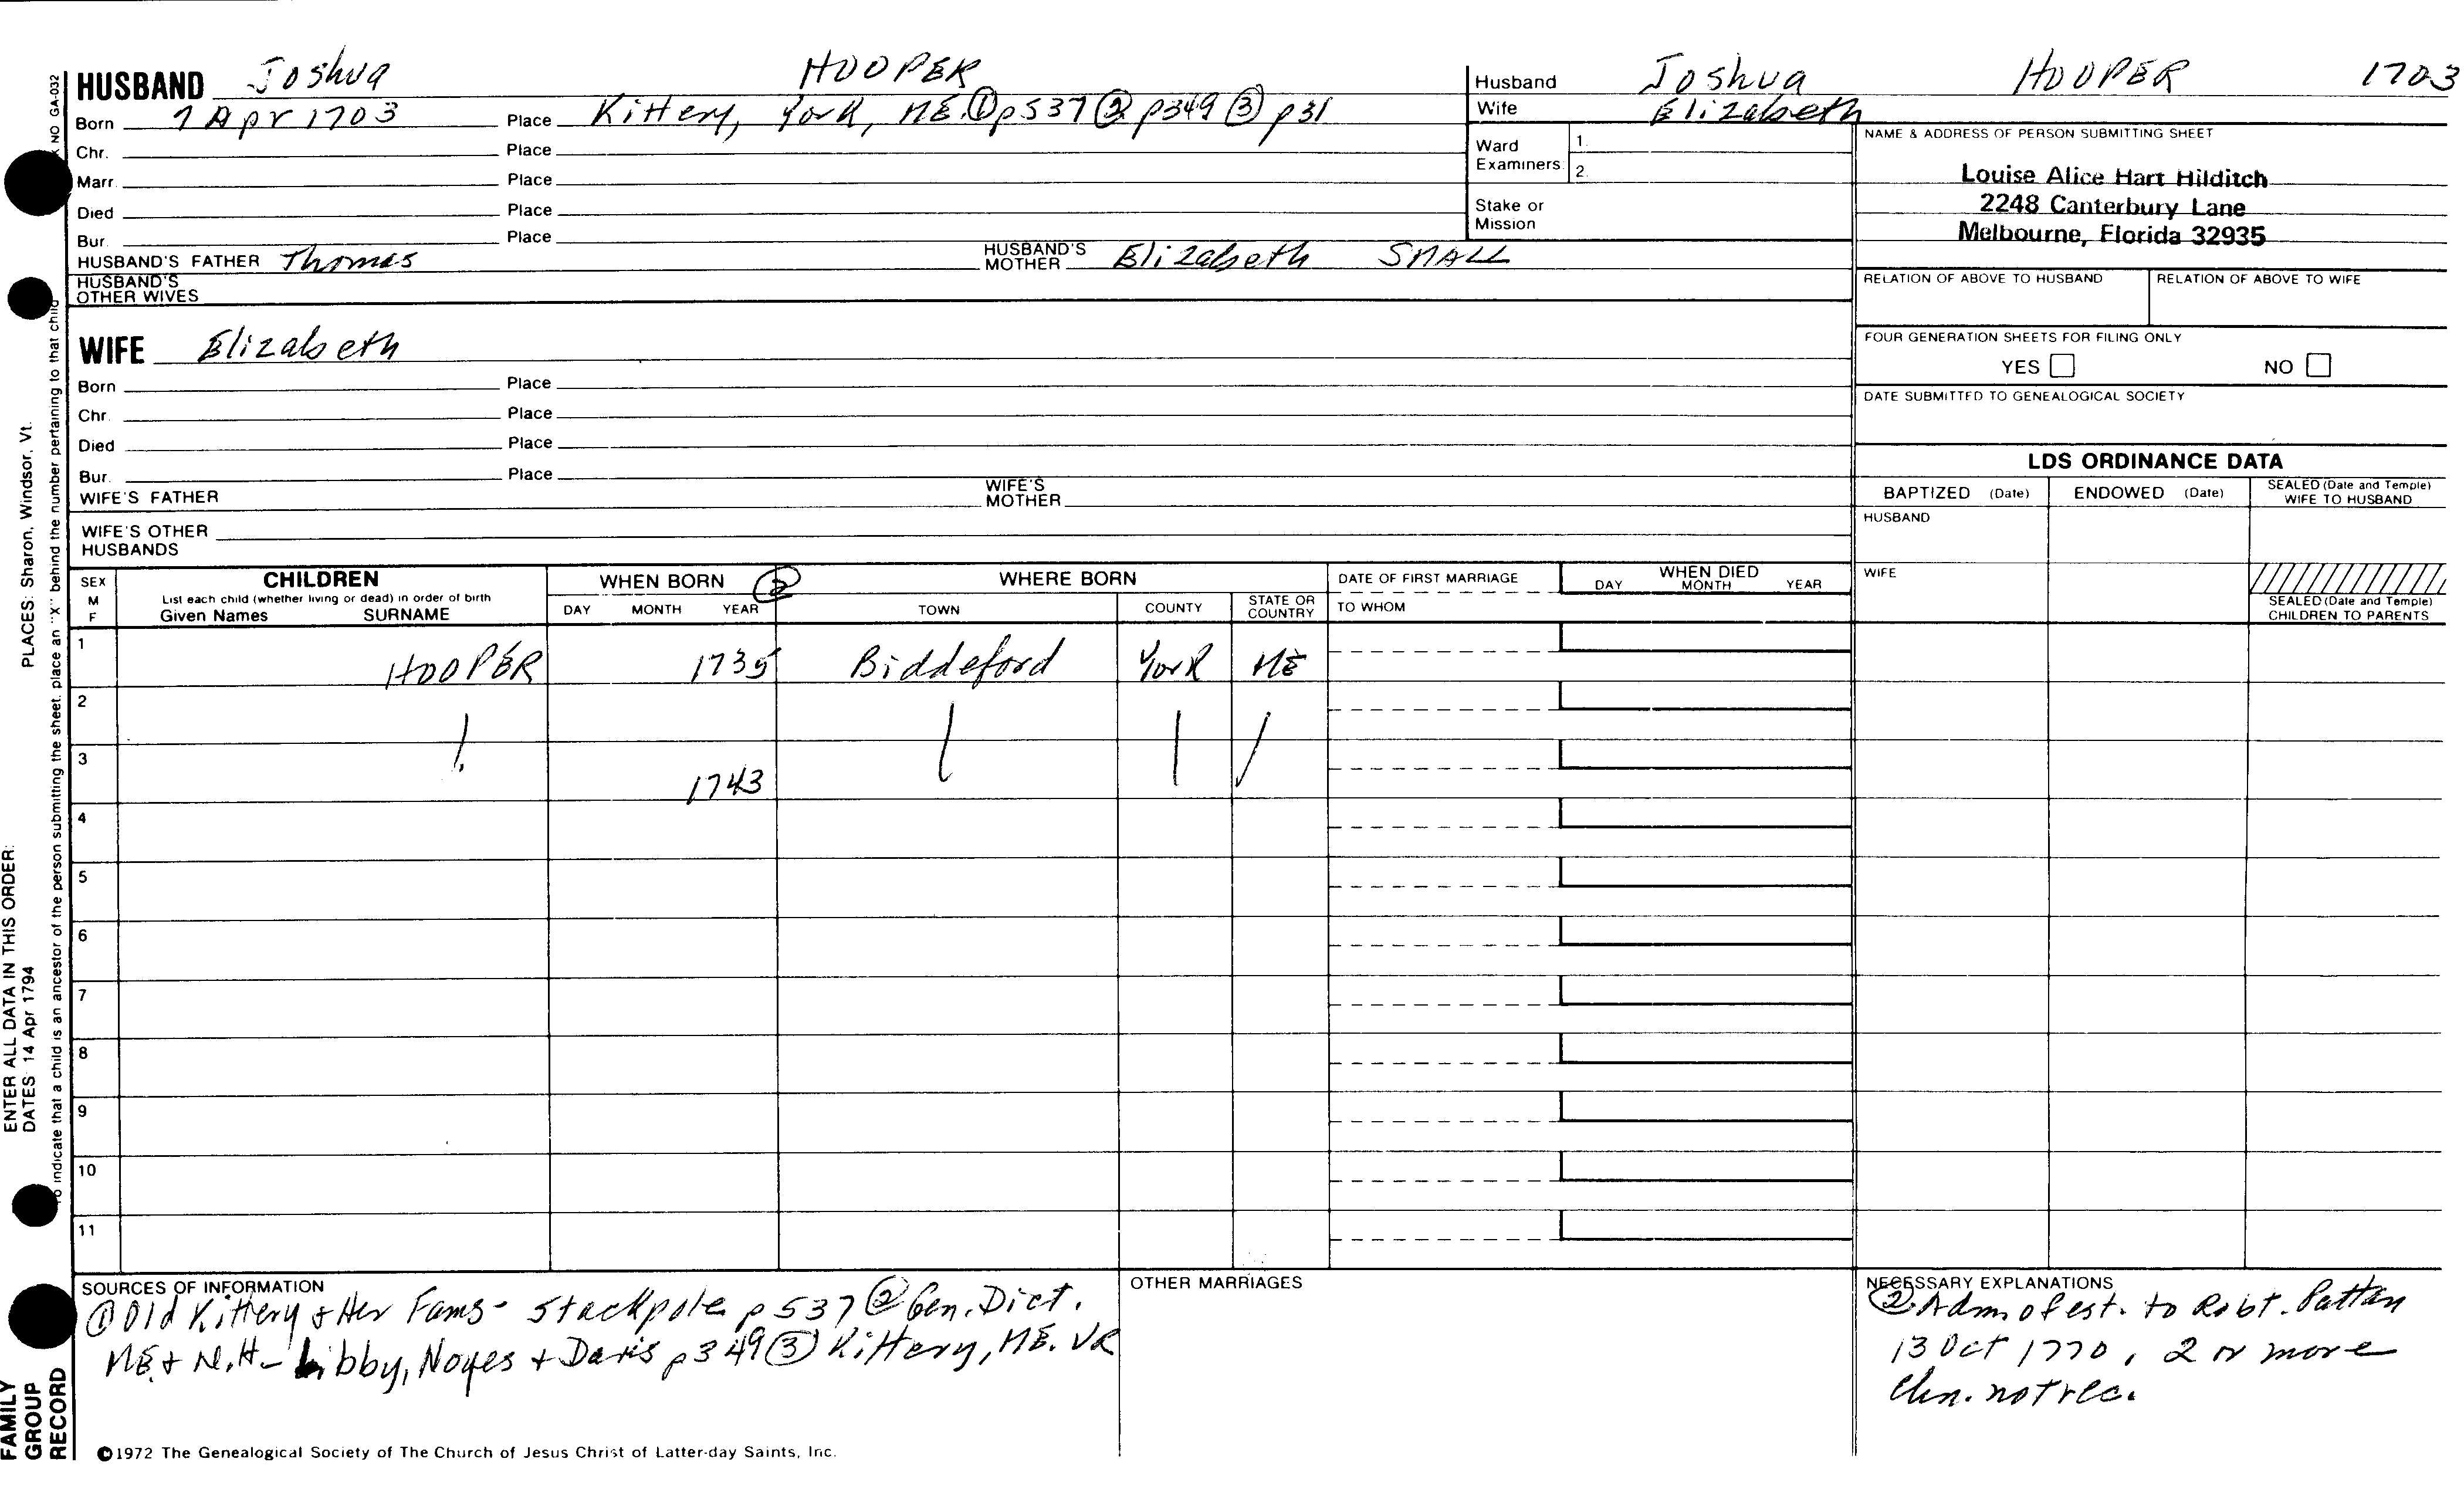 HUSBAND Joshua HOOPER
Born 7 Apr 1703 Place Kittery, York, ME. ① p537 ② p349 ③ p31
Chr. Place
Marr. Place
Died Place
Bur. Place
HUSBAND'S FATHER Thomas HUSBAND'S MOTHER Elizabeth SMALL
HUSBAND'S OTHER WIVES
WIFE Elizabeth
Born Place
Chr. Place
Died Place
Bur. Place
WIFE'S FATHER WIFE'S MOTHER
WIFE'S OTHER HUSBANDS
Husband Joshua HOOPER 1703
Wife Elizabeth
Ward Examiners: 1. 2.
Stake or Mission
NAME & ADDRESS OF PERSON SUBMITTING SHEET
Louise Alice Hart Hilditch
2248 Canterbury Lane
Melbourne, Florida 32935
RELATION OF ABOVE TO HUSBAND RELATION OF ABOVE TO WIFE
FOUR GENERATION SHEETS FOR FILING ONLY
YES NO
DATE SUBMITTED TO GENEALOGICAL SOCIETY
LDS ORDINANCE DATA
BAPTIZED (Date) ENDOWED (Date) SEALED (Date and Temple) WIFE TO HUSBAND
HUSBAND
WIFE
SEALED (Date and Temple)
CHILDREN TO PARENTS
SEX M F
CHILDREN
List each child (whether living or dead) in order of birth
Given Names SURNAME
WHEN BORN ②
DAY MONTH YEAR
WHERE BORN
TOWN COUNTY STATE OR COUNTRY
DATE OF FIRST MARRIAGE
TO WHOM
WHEN DIED
DAY MONTH YEAR
1 HOOPER 1735 Biddeford York ME
2
3 1743
4
5
6
7
8
9
10
11
SOURCES OF INFORMATION
① Old Kittery & Her Fams - Stackpole p537 ② Gen. Dict.
ME. & N.H. - Libby, Noyes + Davis p349 ③ Kittery, ME. VR
OTHER MARRIAGES
NECESSARY EXPLANATIONS
② Adm. of est. to Robt. Pattan
13 Oct 1770, 2 or more
chn. not rec.
©1972 The Genealogical Society of The Church of Jesus Christ of Latter-day Saints, Inc.
NO GA-032
PLACES: Sharon, Windsor, Vt.
ENTER ALL DATA IN THIS ORDER:
DATES: 14 Apr 1794
To indicate that a child is an ancestor of the person submitting the sheet, place an "X" behind the number pertaining to that child
FAMILY
GROUP
RECORD